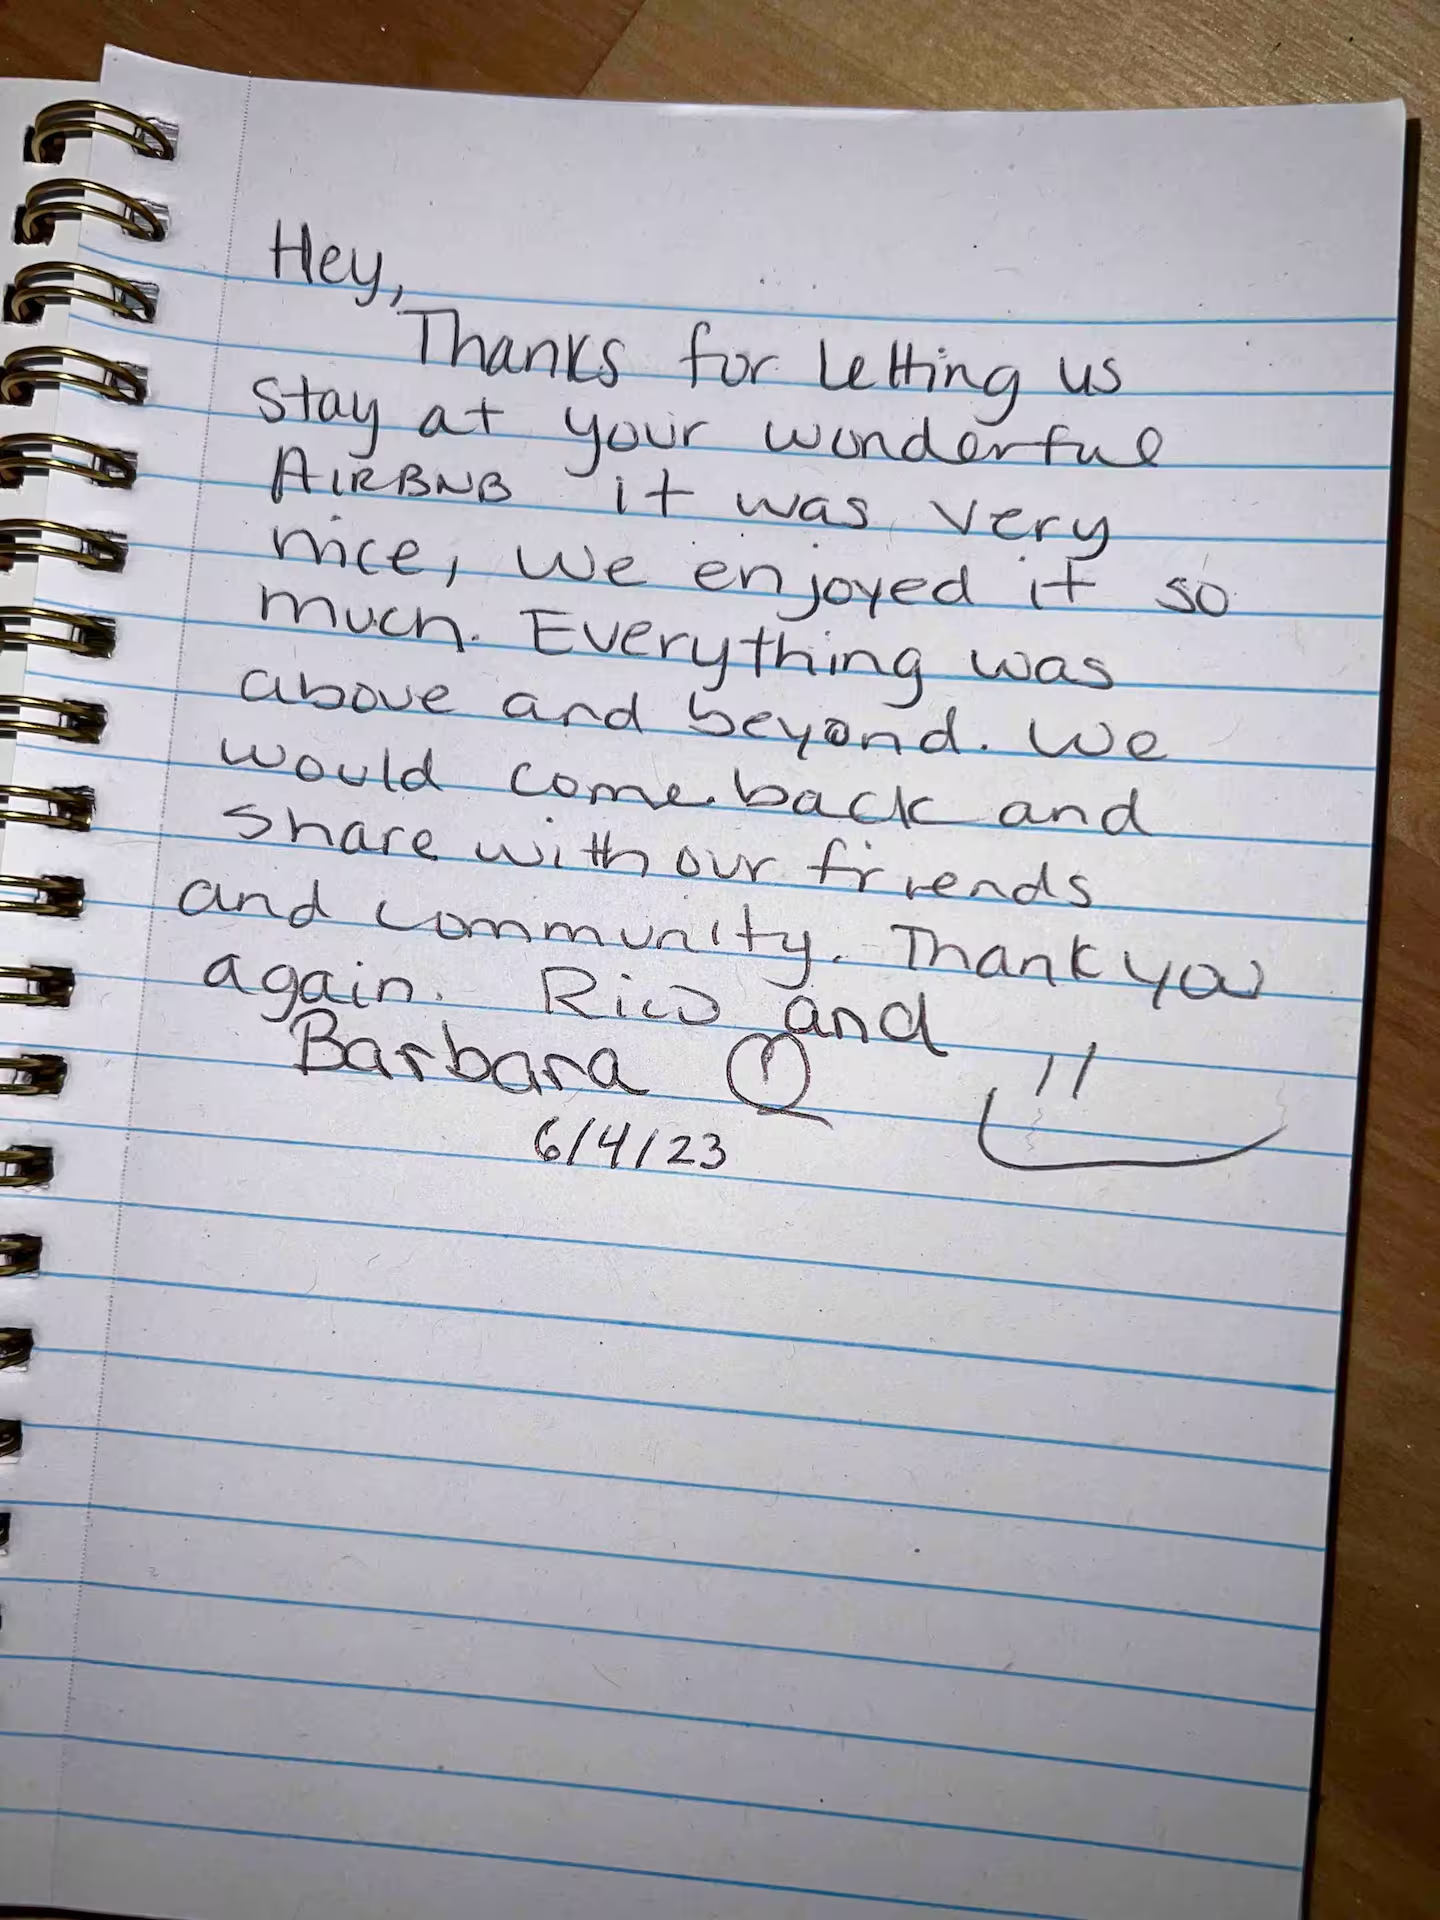 Hey,
Thanks for letting us
stay at your wonderful
AIRBNB it was very
nice, we enjoyed it so
much. Everything was
above and beyond. We
would come back and
share with our friends
and community. Thank you
again. Rico and
Barbara
6/4/23